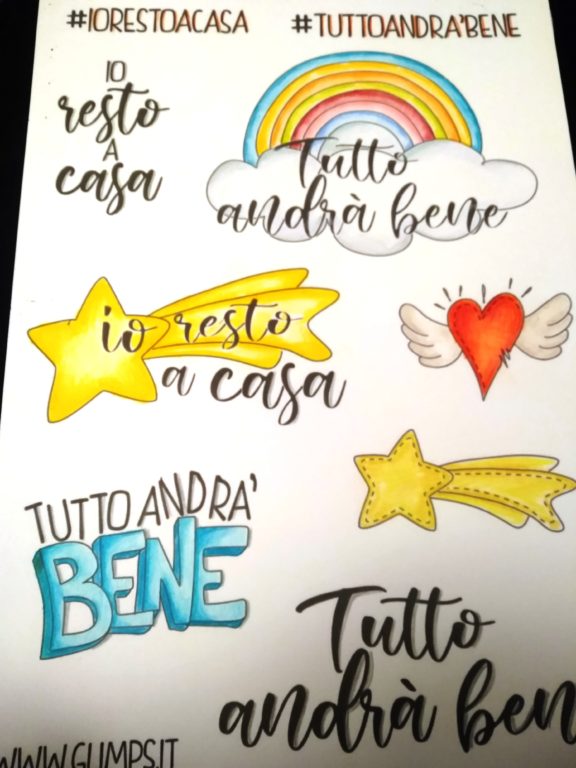 #IORESTOACASA
#TUTTOANDRA'BENE
IO
resto
A
casa
Tutto
andrà bene
io resto
a casa
TUTTO ANDRA'
BENE
Tutto
andrà ben
WWW.GLIMPS.IT